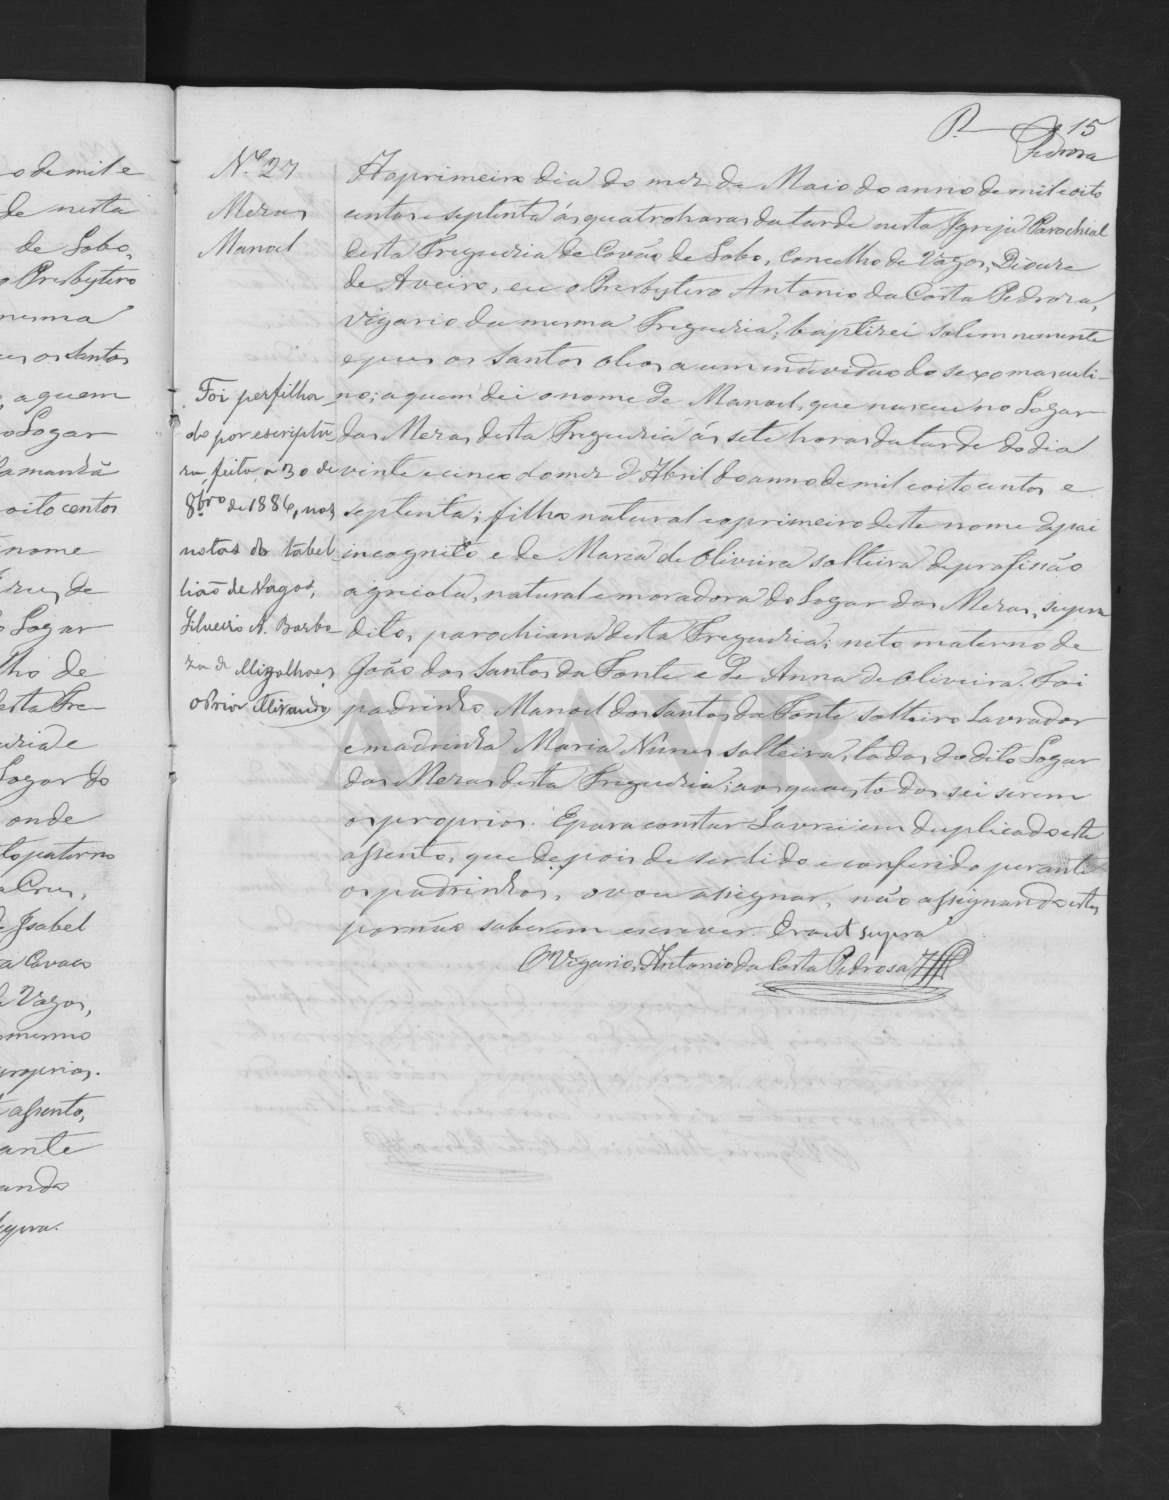 P. 15
Pedrosa
N.º 27
Mezas
Manoel
Ao primeiro dia do mez de Maio do anno de mil oito
centos e septenta ás quatro horas da tarde nesta Igreja Parochial
desta Freguezia de Covão de Lobo, Concelho de Vagos, Diocese
de Aveiro, eu o Presbytero Antonio da Costa Pedroza,
Vigario da mesma Freguezia; baptizei solemnemente
e puz os Santos oleos a um individuo do sexo masculi-
no; a quem dei o nome de Manoel, que nasceu no Logar
das Mezas desta Freguezia ás sete horas da tarde do dia
vinte e cinco do mez d'Abril do anno de mil e oitocentos e
septenta; filho natural e o primeiro deste nome de pai
incognito e de Maria de Oliveira solteira de profissão
agricola, natural e moradora do Logar das Mezas, supra
dito, parochiana desta Freguezia; neto materno de
João dos Santos da Fonte e de Anna de Oliveira. Foi
padrinho Manoel dos Santos da Fonte solteiro Lavrador
e madrinha Maria Nunes solteira, todos do dito Logar
das Mezas desta Freguezia; aos quaes todos sei serem
os proprios. E para constar Lavrei em duplicado este
assento, que depois de ser lido e conferido perante
os padrinhos, o vou assignar, não assignando estes
por não saberem escrever. Era ut supra
O Vigario, Antonio da Costa Pedrosa
Foi perfilha
do por escriptu
ra, feita a 30 de
8bro de 1886, nas
notas do tabel
lião de Vagos,
Silveiro A. Barbo
za de Magalhaes
o Prior Mirando
o de mil e
de nesta
de Lobo,
o Presbytero
mesma
puz os Santos
, a quem
o Logar
da manhã
oito centos
nome
Cruz, de
o Logar
lho de
desta Fre-
guezia e
Logar do
onde
to paterno
a Cruz,
de Isabel
a Covao
de Vagos,
mesmo
proprios.
assento,
ante
ando
supra.
ADAVR